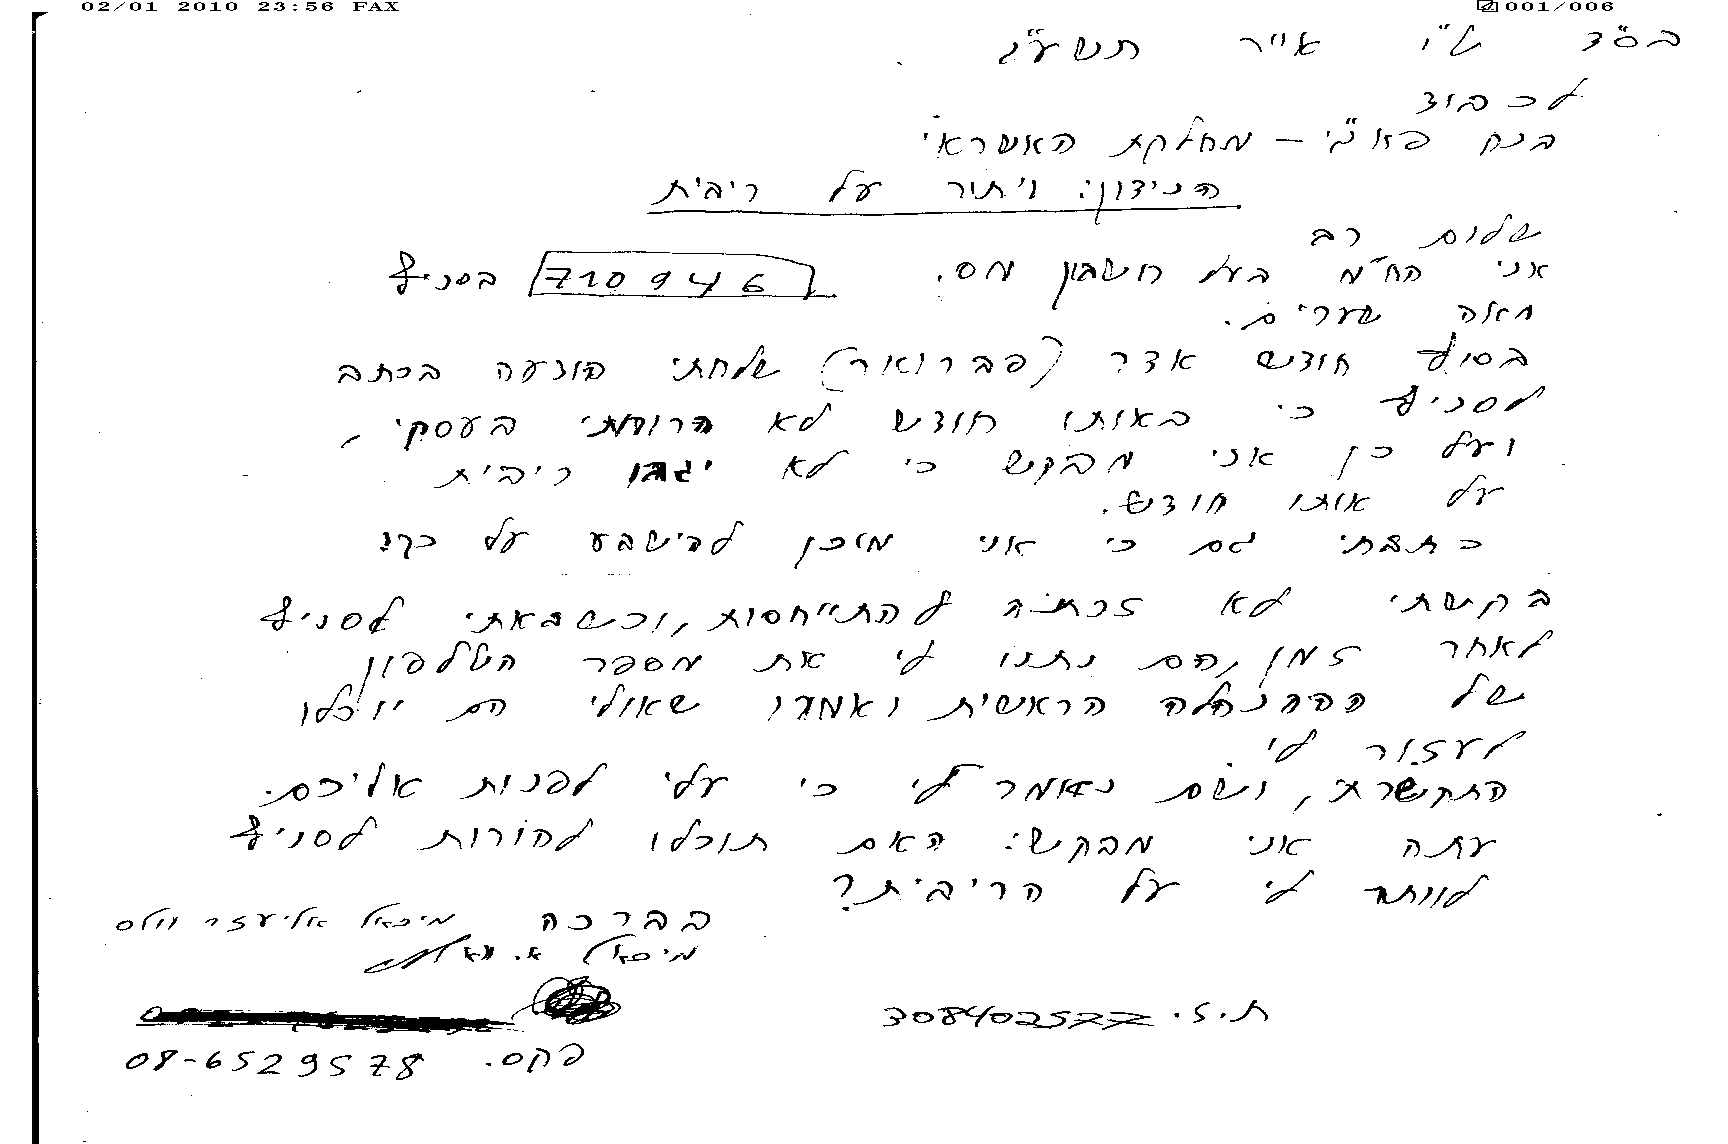 02/01 2010 23:56 FAX 001/006
בס"ד ט"ו אייר תשע"ג
לכבוד
בנק פאג"י - מחלקת האשראי
הנידון: ויתור על ריבית
שלום רב
אני הח"מ בעל חשבון מס. 710946 בסניף
מאה שערים.
בסוף חודש אדר (פברואר) שלחתי הודעה בכתב
לסניף כי באותו חודש לא הרווחתי בעסקי,
ועל כן אני מבקש כי לא יגבו ריבית
על אותו חודש.
כתבתי גם כי אני מוכן להישבע על כך!
בקשתי לא זכתה להתייחסות, וכשבאתי לסניף
לאחר זמן, הם נתנו לי את מספר הטלפון
של ההנהלה הראשית ואמרו שאולי הם יוכלו
לעזור לי.
התקשרתי, ושם נאמר לי כי עלי לפנות אליכם.
עתה אני מבקש: האם תוכלו להורות לסניף
לוותר לי על הריבית?
בברכה מיכאל אליעזר וולס
מיכאל א.
ת.ז. 308402577
פקס. 08-6529578